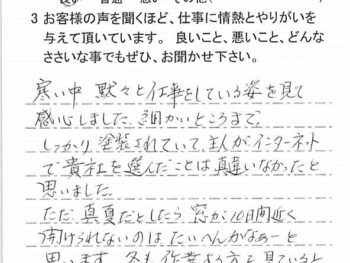 3 お客様の声を聞くほど、仕事に情熱とやりがいを
与えて頂いています。良いこと、悪いこと、どんな
ささいな事でもぜひ、お聞かせ下さい。
寒い中 黙々と仕事をしている姿を見て
感心しました。細かいところまで、
しっかり塗装されていて、主人がインターネット
で貴社を選んだことは真違いなかったと
思いました。
ただ、真夏だとしたら 窓が10日間近く
開けられないのは たいへんかなぁーと
思います。